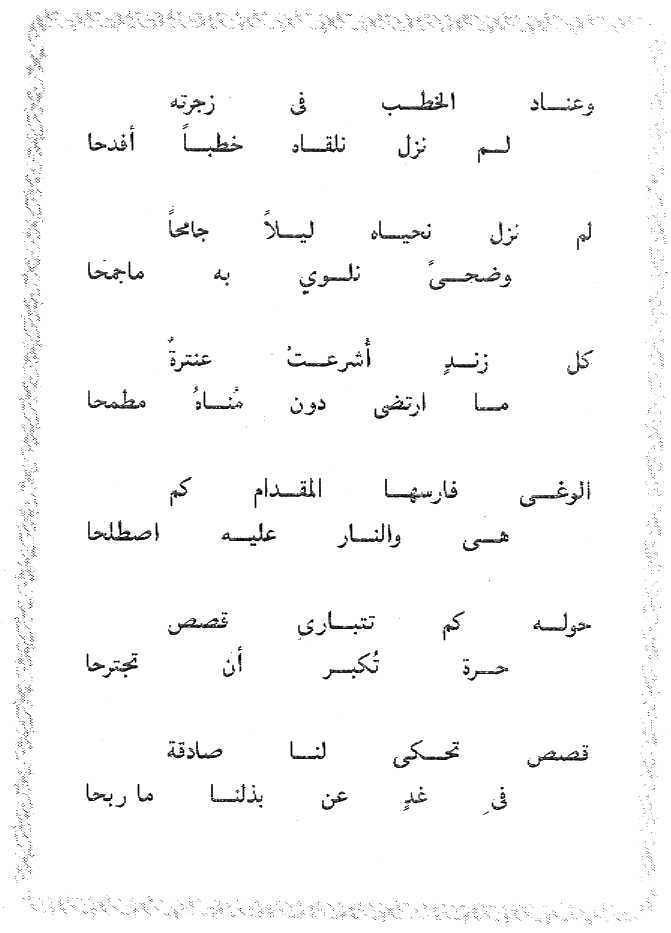 وعناد الخطب فى زجرته
لم نزل نلقاه خطباً أفدحا
لم نزل نحياه ليلاً جامحاً
وضحىً نلوي به ماجمحا
كل زندٍ أُشرعتْ عنترةٌ
ما ارتضى دون مُناهُ مطمحا
الوغى فارسها المقدام كم
هى والنار عليه اصطلحا
حوله كم تتبارى قصص
حرة تُكبر أن تجترحا
قصص تحكى لنا صادقة
فى غدٍ عن بذلنا ما ربحا